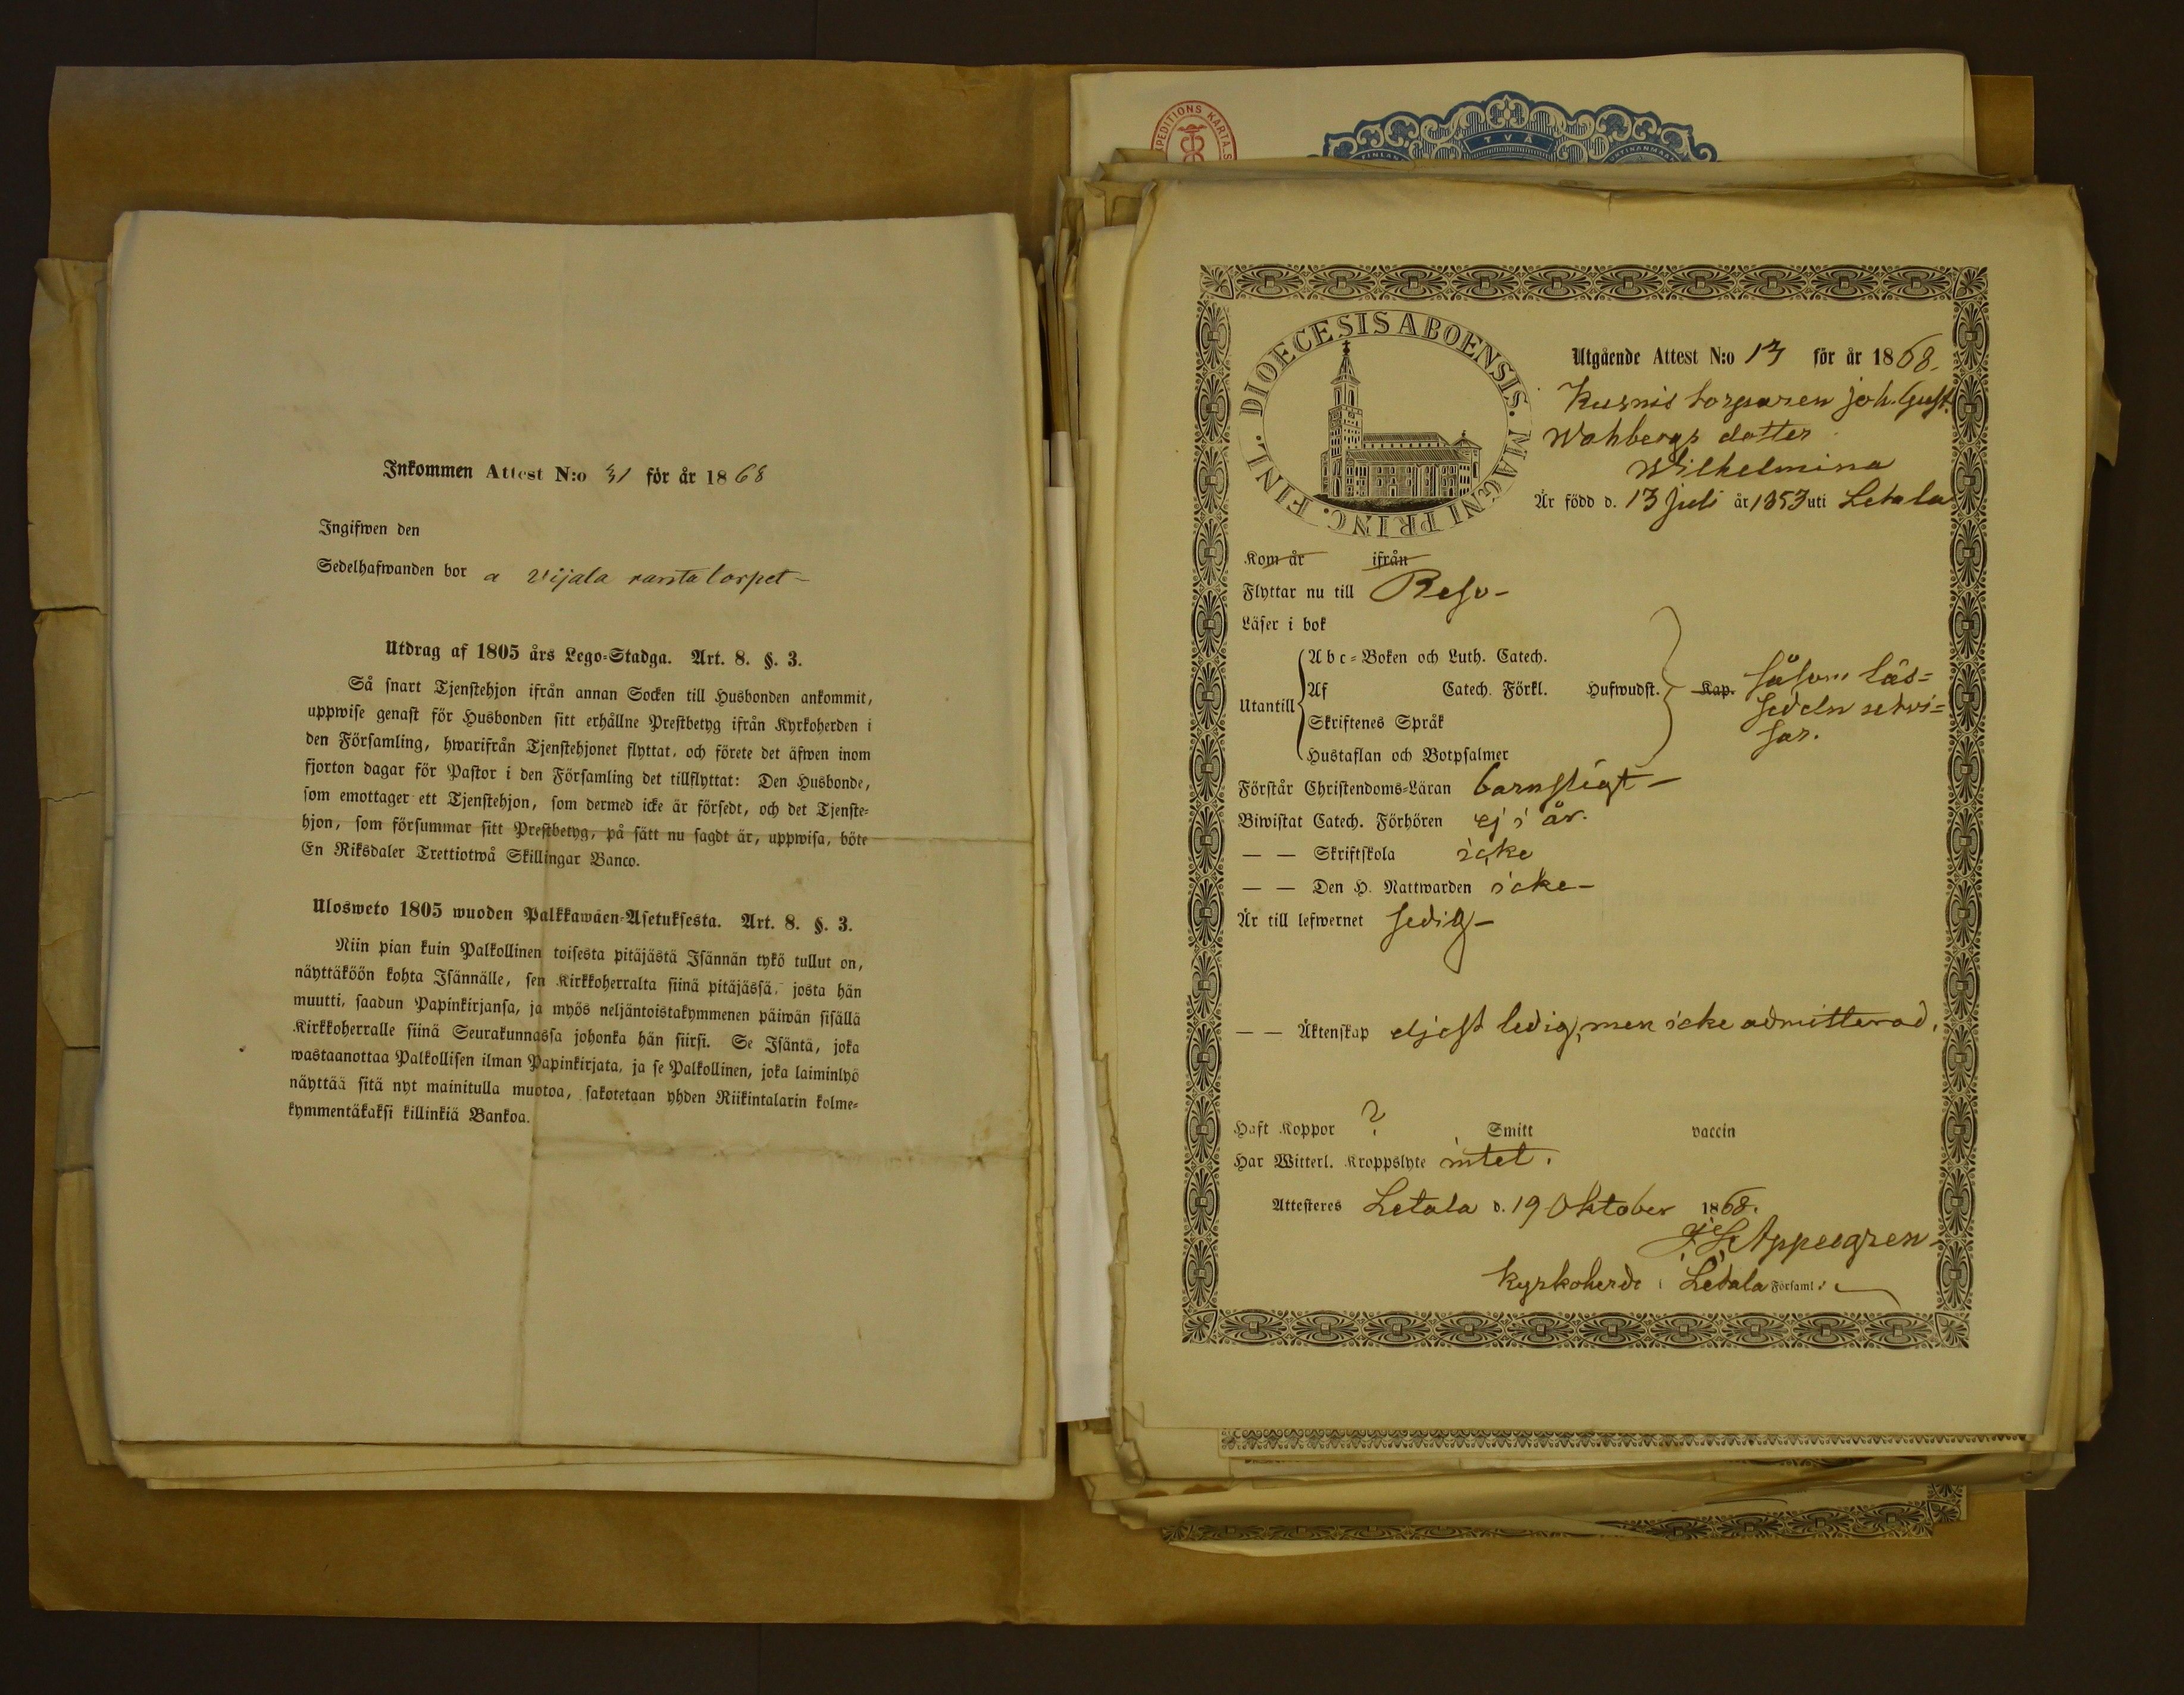 Inkommen Attest N:o 31 för år 1868
Ingifwen den
Sedelhafwanden bor a Vijala ranta torpet -
Utdrag af 1805 års Lego-Stadga. Art. 8. §. 3.
Så snart Tjenstehjon ifrån annan Socken till Husbonden ankommit,
uppwise genast för Husbonden sitt erhållne Prestbetyg ifrån Kyrkoherden i
den Församling, hwarifrån Tjenstehjonet flyttat, och förete det äfwen inom
fjorton dagar för Pastor i den Församling det tillflyttat: Den Husbonde,
som emottager ett Tjenstehjon, som dermed icke är försedt, och det Tjenste-
hjon, som försummar sitt Prestbetyg, på sätt nu sagdt är, uppwisa, böte
En Riksdaler Trettiotwå Skillingar Banco.
Ulosweto 1805 wuoden Palkkawäen-Asetuksesta. Art. 8. §. 3.
Niin pian kuin Palkollinen toisesta pitäjästä Isännän tykö tullut on,
näyttäköön kohta Isännälle, sen Kirkkoherralta siinä pitäjässä, josta hän
muutti, saadun Papinkirjansa, ja myös neljäntoistakymmenen päiwän sisällä
Kirkkoherralle siinä Seurakunnassa johonka hän siirsi. Se Isäntä, joka
wastaanottaa Palkollisen ilman Papinkirjata, ja se Palkollinen, joka laiminlyö
näyttää sitä nyt mainitulla muotoa, sakotetaan yhden Riikintalarin kolme-
kymmentäkaksi killinkiä Bankoa.
PEDITIONS KARTA.S
TVÅ
FINLAN
DIOECESIS ABOENSIS. MAGNI PRINC. FINL.
Utgående Attest N:o 13 för år 1868.
Kurnis torparen Joh. Gust.
Wahbergs dotter
Wilhelmina
Är född d. 13 Juli år 1853 uti Letala
Kom år ifrån
Flyttar nu till Reso -
Läser i bok
Utantill
Abc-Boken och Luth. Catech.
Af Catech. Förkl. Hufwudst. Kap.
Skriftenes Språk
Hustaflan och Botpsalmer
såsom läs=
sedeln utvi=
sar.
Förstår Christendoms-Läran barnsligt -
Biwistat Catech. Förhören ej i år.
— — Skriftskola icke
— — Den H. Nattwarden icke -
Är till lefwernet sedig -
— — Äktenskap eljest ledig, men icke admitterad.
Haft Koppor ? Smitt vaccin
Har Witterl. Kroppslyte intet.
Attesteres Letala d. 19 Oktober 1868.
Appelgren
Kyrkoherde i Letala Församl: